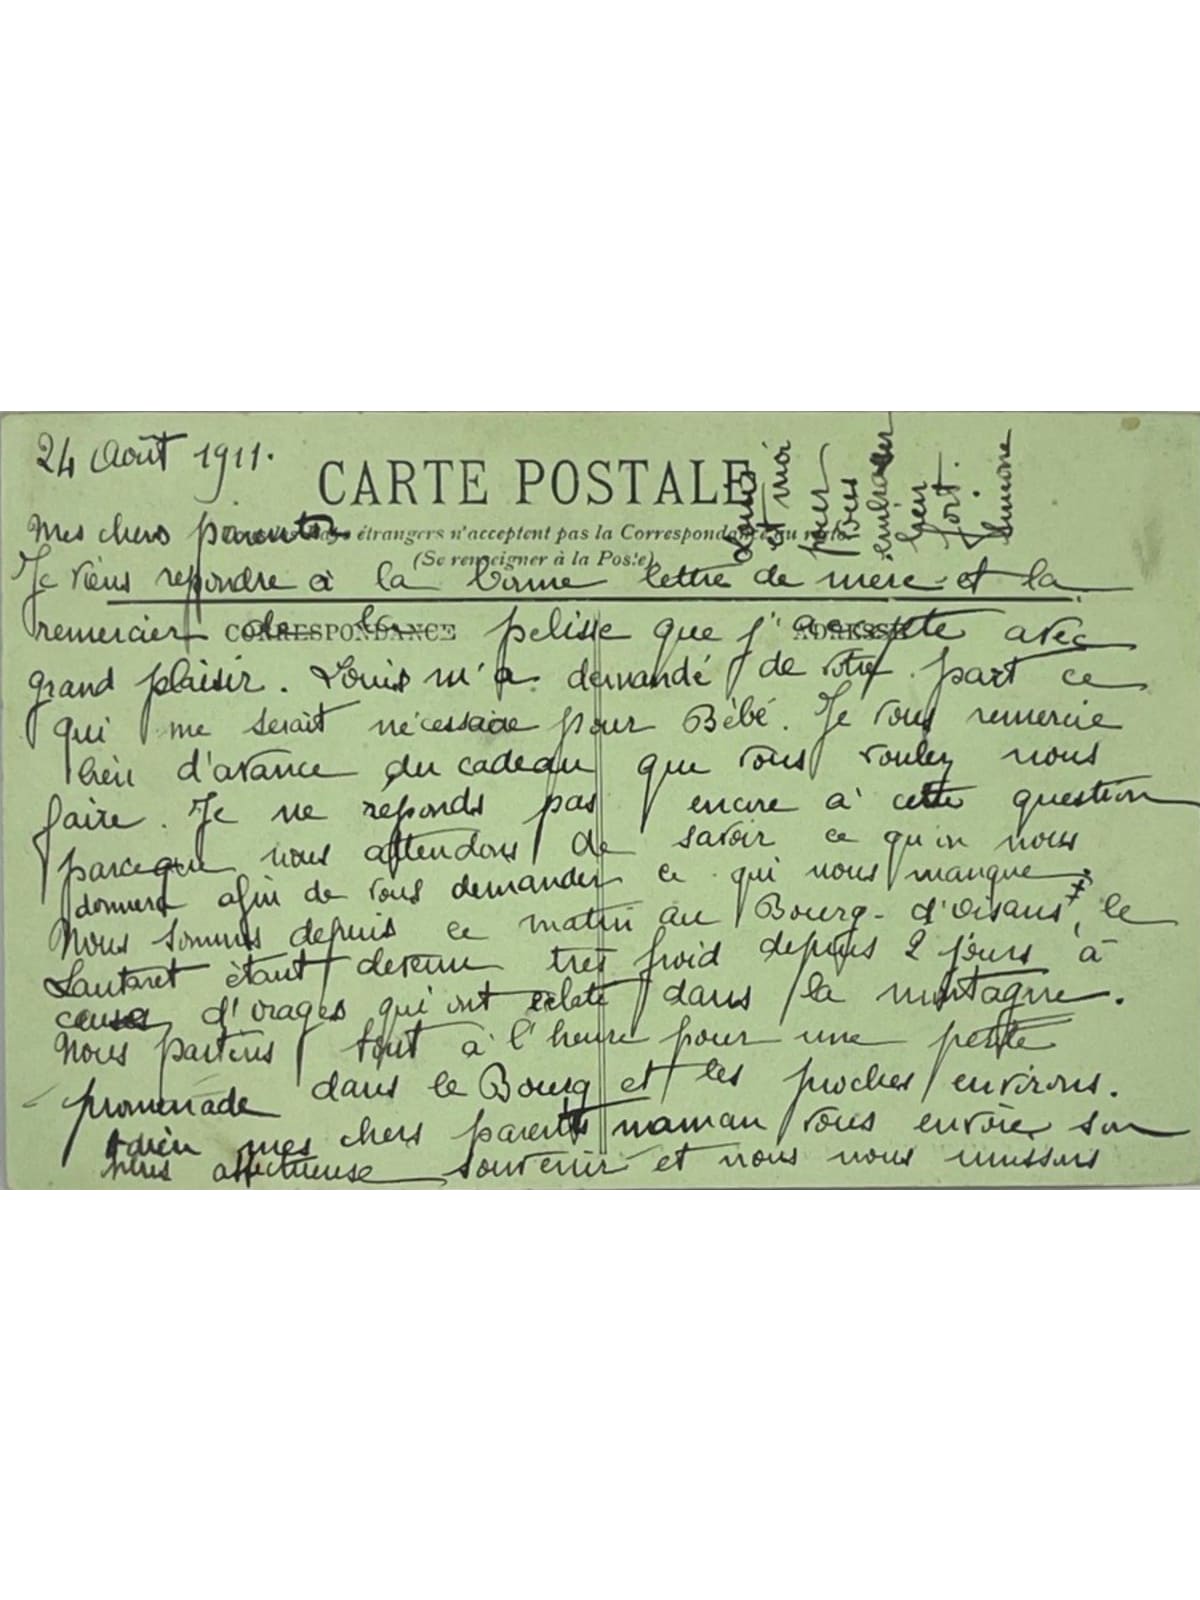 24 Août 1911.
CARTE POSTALE
étrangers n'acceptent pas la Correspondance au recto.
(Se renseigner à la Poste)
CORRESPONDANCE
ADRESSE
Mes chers parents
Je viens repondre à la bonne lettre de mère et la
remercier de la pelisse que j'accepte avec
grand plaisir. Louis m'a demandé de votre part ce
qui me serait nécessaire pour Bébé. Je vous remercie
bien d'avance du cadeau que vous voulez nous
faire. Je ne reponds pas encore à cette question
parceque nous attendons de savoir ce qu'on nous
donnera afin de vous demander ce qui nous manque.
Nous sommes depuis ce matin au Bourg-d'Oisans, le
Lautaret étant devenu très froid depuis 2 jours à
cause d'orages qui ont éclaté dans la montagne.
Nous partons tout à l'heure pour une petite
promenade dans le Bourg et les proches environs.
Adieu mes chers parents maman vous envoie son
plus affectueux souvenir et nous nous unissons
Louis
et moi
pour
vous
embrasser
bien
fort.
Simone